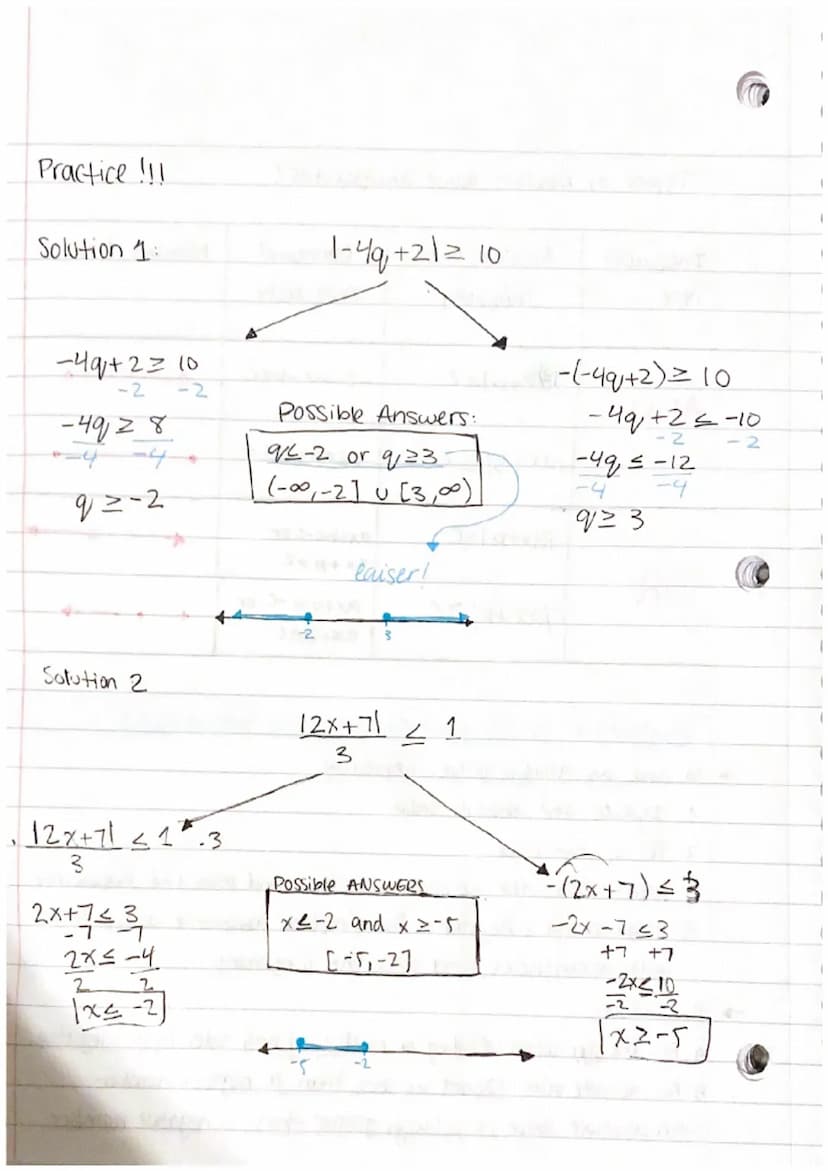 Practice !!!
Solution 1: |-4q+2| ≥ 10
-4q+2 ≥ 10
-2 -2
-4q ≥ 8
-4 -4
q ≥ -2
Possible Answers:
q ≤ -2 or q ≥ 3
(-∞, -2] ∪ [3, ∞)
eaiser!
-(-4q+2) ≥ 10
-4q+2 ≤ -10
-2 -2
-4q ≤ -12
-4 -4
q ≥ 3
-2 3
Solution 2
|2x+7| ≤ 1
3
|2x+7| ≤ 1 .3
3
2x+7 ≤ 3
-7 -7
2x ≤ -4
2 2
x ≤ -2
Possible ANSWERS
x ≤ -2 and x ≥ -5
[-5, -2]
-(2x+7) ≤ 3
-2x -7 ≤ 3
+7 +7
-2x ≤ 10
-2 -2
x ≥ -5
-5 -2